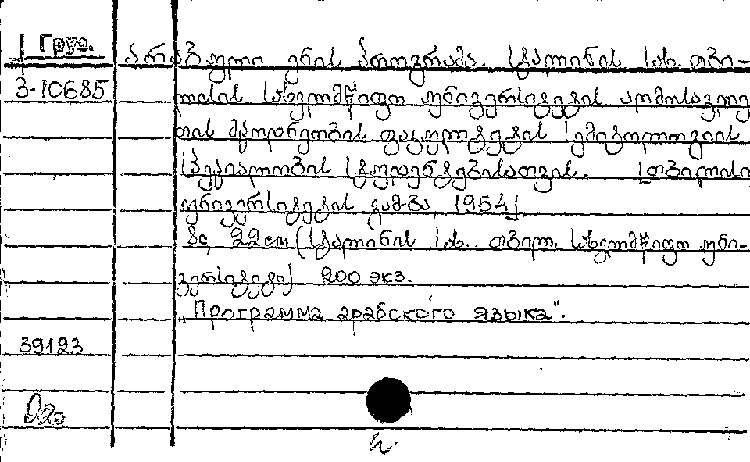 Груз.
3-10685
არაბული ენის პროგრამა. სტალინის სახ. თბი-
ლისის სახელმწიფო უნივერსიტეტის აღმოსავლე
თის მცოდნეობის ფაკულტეტის სემიტოლოგიის
სპეციალობის სტუდენტებისათვის. [თბილისი
უნივერსიტეტის გამ-ბა, 1954]
8с, 22см. (სტალინის სახ. თბილ. სახელმწიფო უნი-
ვერსიტეტი) 200 экз.
„Программа арабского языка".
39123